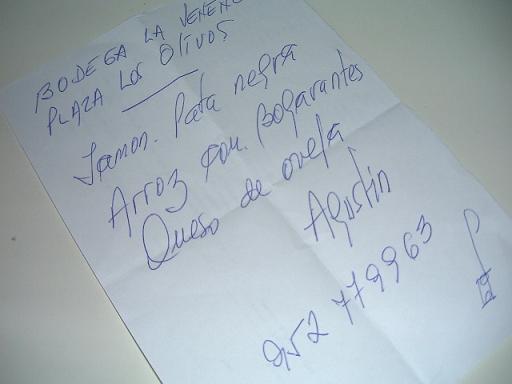 BODEGA LA VENENO
PLAZA LOS OLIVOS
Jamon. Pata negra
Arroz con. Bogarantes
Queso de oveja
Agustin
952 779963